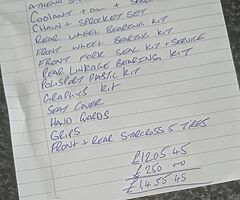 ATHENA
COOLANT + OIL +
CHAIN + SPROCKET SET
REAR WHEEL BEARING KIT
FRONT WHEEL BEARING KIT
FRONT FORK SEAL KIT + SERVICE
REAR LINKAGE BEARINGS KIT
POLISPORT PLASTIC KIT
GRAPHICS KIT
SEAT COVER
HAND GARDS
GRIPS
FRONT + REAR STARCROSS 5 TYRES
£1205.45
£250.00
£1,455.45